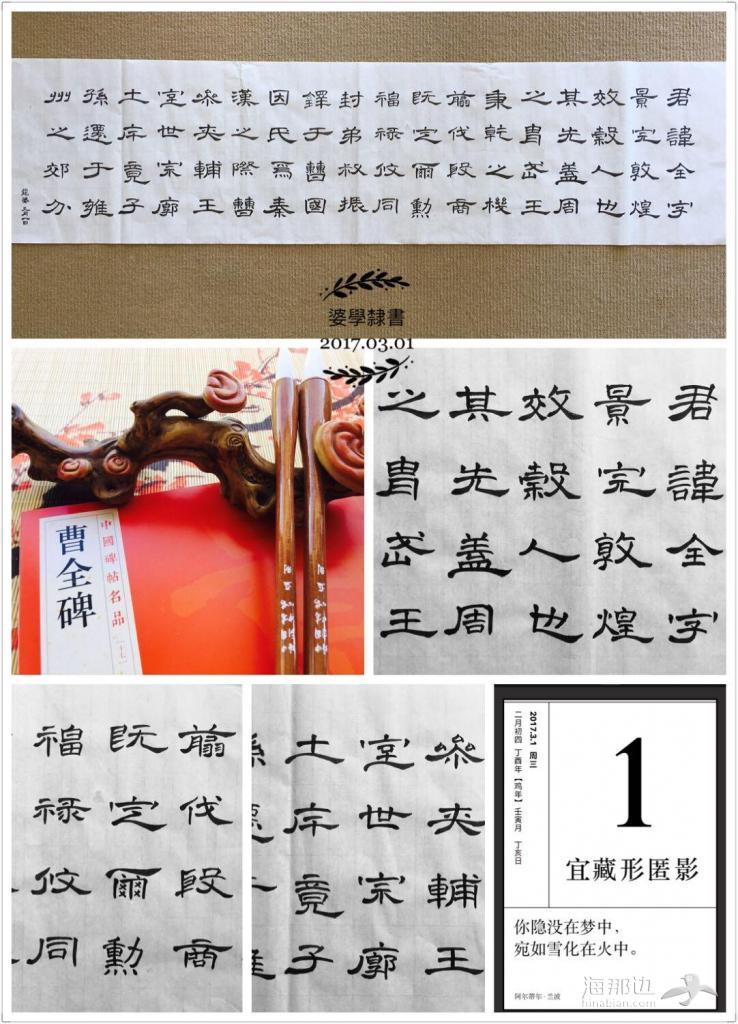 君諱全字
景完敦煌
效穀人也
其先蓋周
之胄武王
秉乾之機
翦伐殷商
既定爾勳
福祿攸同
封弟叔振
鐸于曹國
因氏焉秦
漢之際曹
參夾輔王
室世宗廓
土斥竟子
孫遷于雍
州之郊分
婆學隸書
2017.03.01
中國碑帖名品
[十七]
曹全碑
君諱全字
景完敦煌
效穀人也
其先蓋周
之胄武王
翦伐殷商
既定爾勳
福祿攸同
參夾輔王
室世宗廓
土斥竟子
2017.3.1 周三
二月初四 丁酉年【鸡年】壬寅月 丁亥日
1
宜藏形匿影
你隐没在梦中，
宛如雪化在火中。
阿尔蒂尔·兰波
海那边
hinabian.com